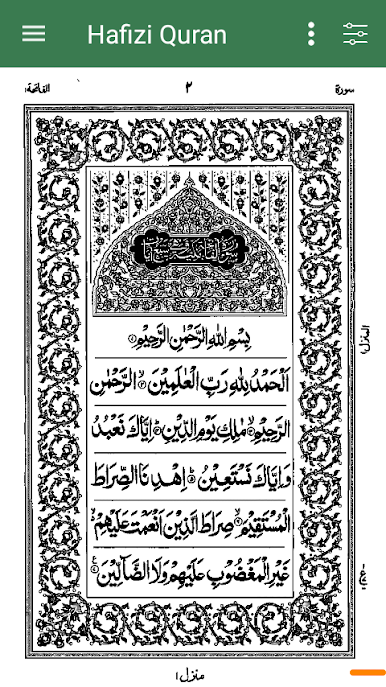 Hafizi Quran
سورة
٢
الفاتحة١
بِسْمِ اللهِ الرَّحْمٰنِ الرَّحِيْمِ
اَلْحَمْدُ لِلّٰهِ رَبِّ الْعٰلَمِيْنَ ۙ الرَّحْمٰنِ
الرَّحِيْمِ ۙ مٰلِكِ يَوْمِ الدِّيْنِ ؕ اِيَّاكَ نَعْبُدُ
وَاِيَّاكَ نَسْتَعِيْنُ ؕ اِهْدِنَا الصِّرَاطَ
الْمُسْتَقِيْمَ ۙ صِرَاطَ الَّذِيْنَ اَنْعَمْتَ عَلَيْهِمْ ۙ
غَيْرِ الْمَغْضُوْبِ عَلَيْهِمْ وَلَا الضَّآلِّيْنَ
المنزل١
منزل١